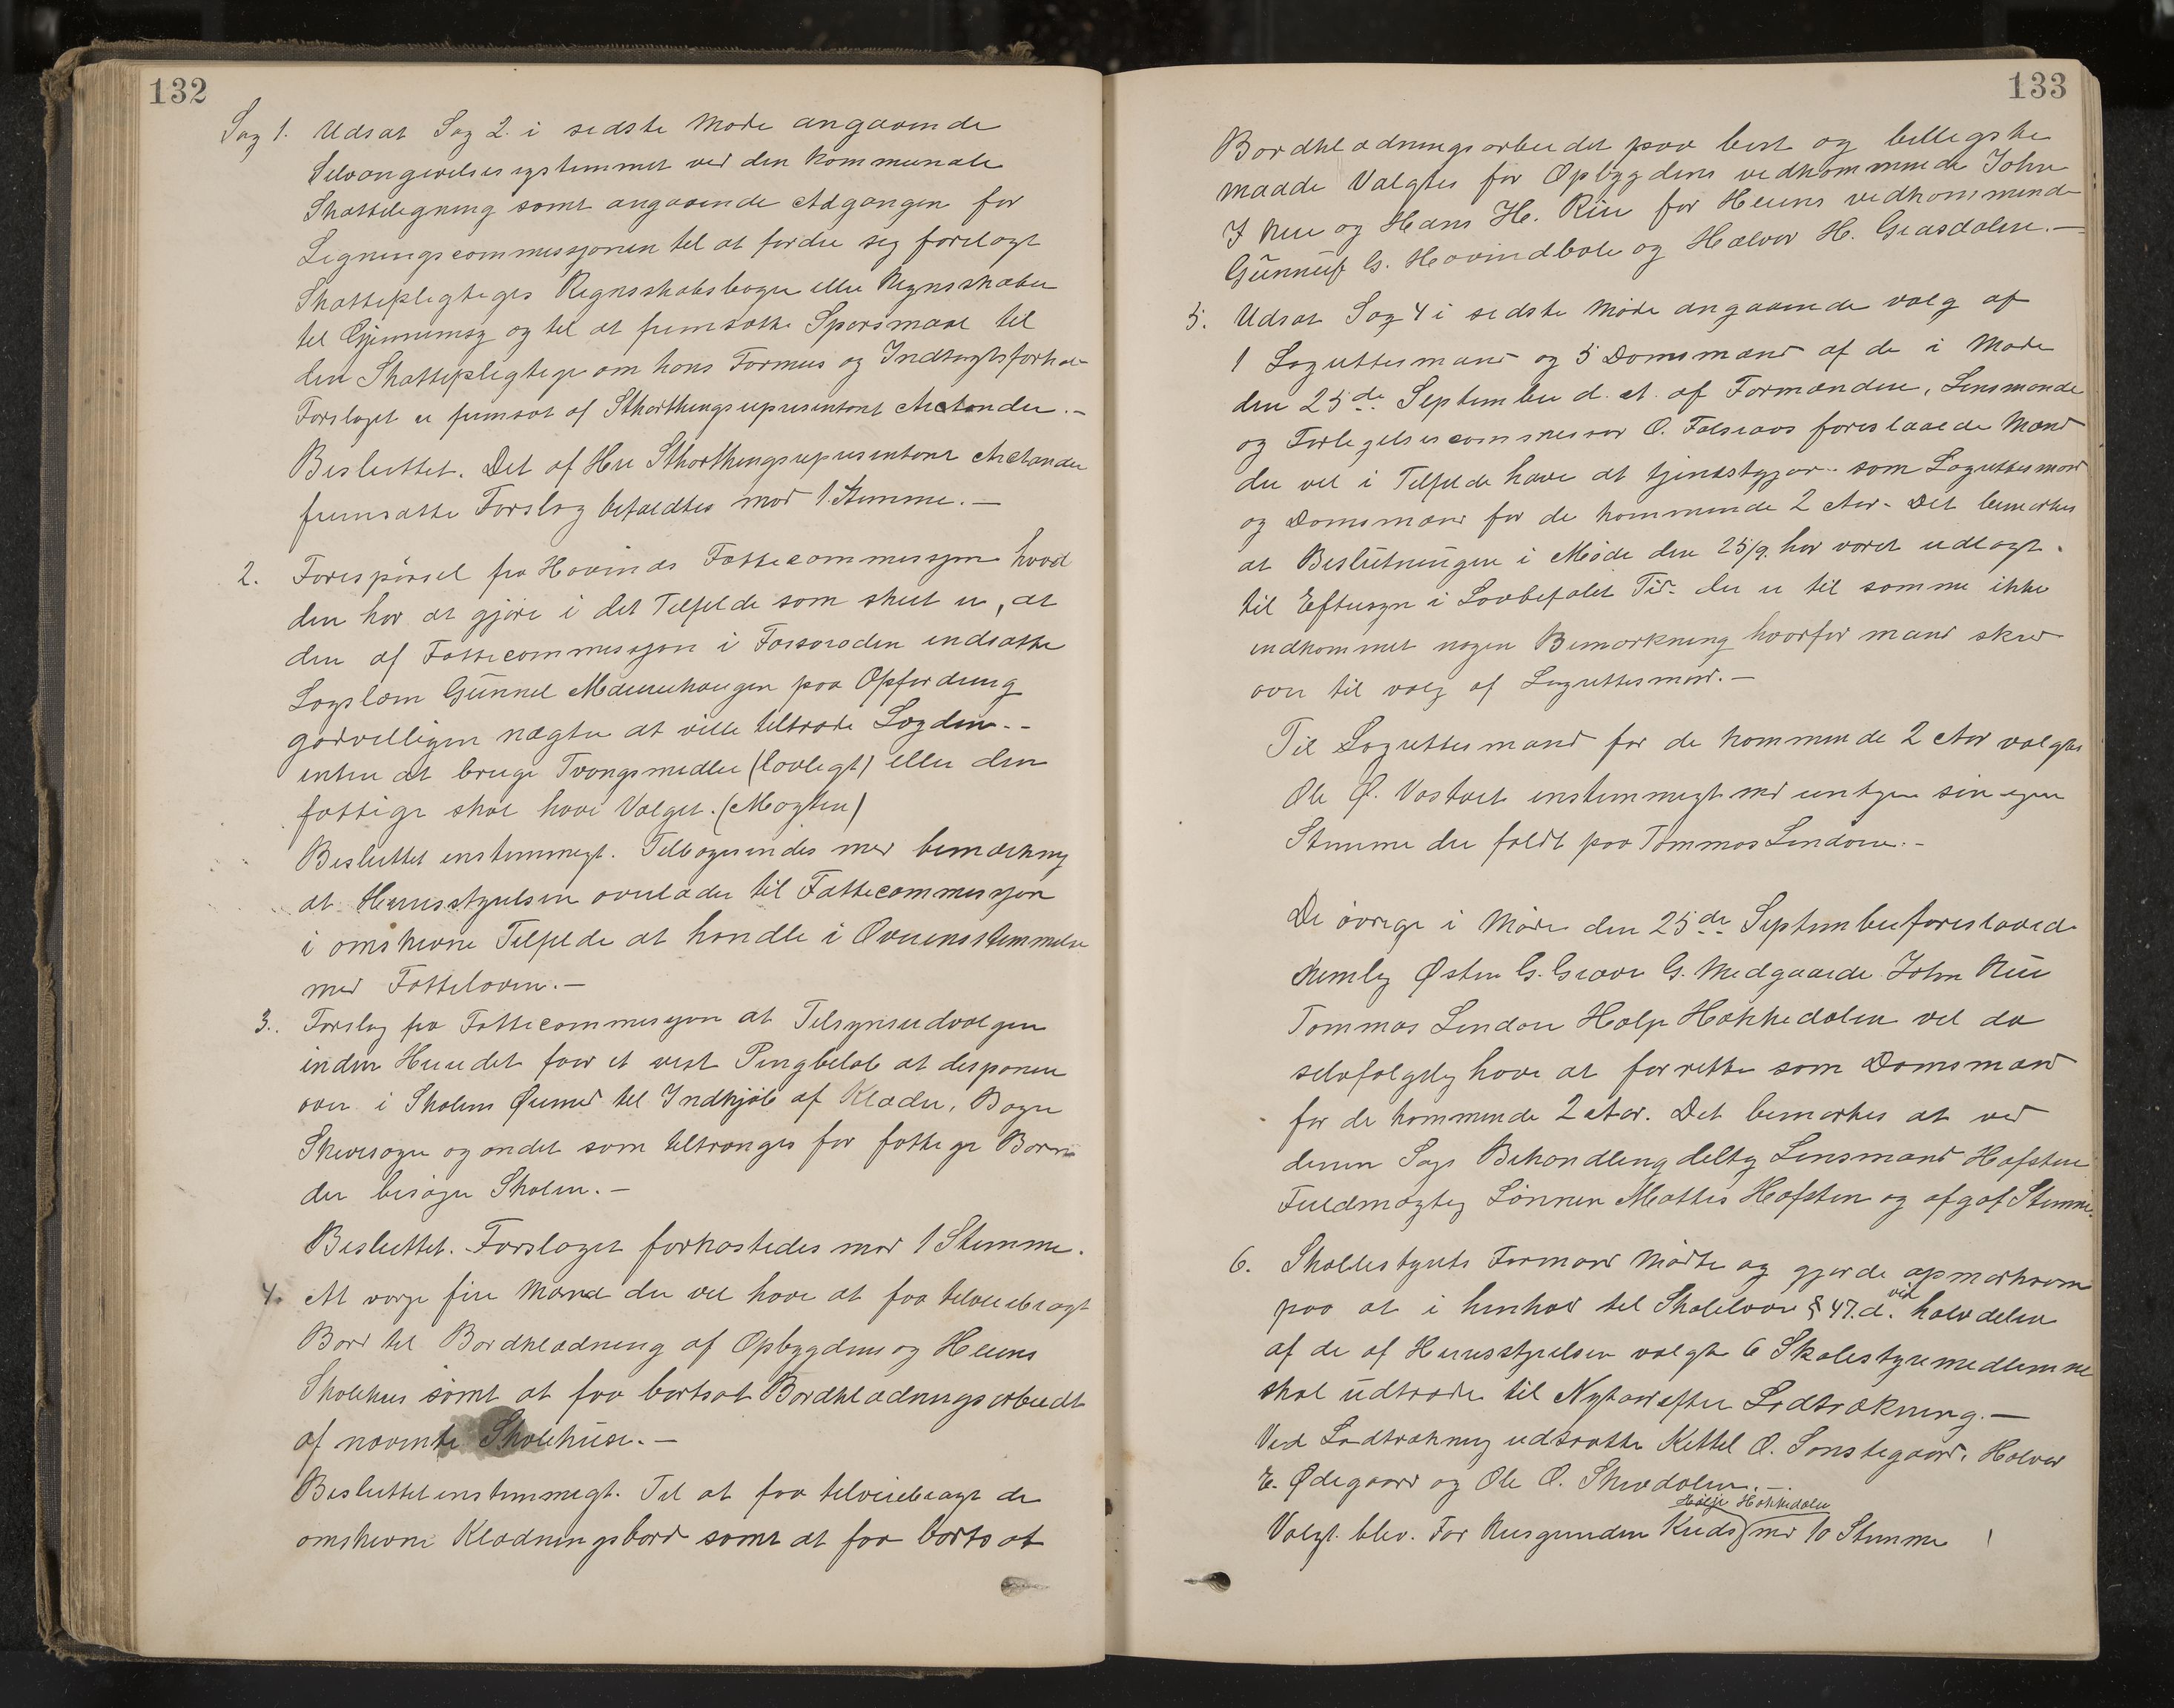 132
Sag 1. Udsat Sag 2. i sedste Møde angaaende
Selvangivelsessystemmet ved den kommunale
Skattelegning samt angaaende Adgangen for
Legningscommessjonen til at fordre sig forelagt
Skattepligtiges Regnsskabsbøger eller Regnsskaber
til Gjennemsyn og til at fremsætte Spørsmaal til
den Skattepligtige om hans Formues og Indtægtsforhol-
Forslaget er fremsat af Sthorthingsrepresentant Arctander.-
Besluttet. Det af Hr Sthorthingsrepresentant Arctander
fremsatte Forslag bifaldtes mod 1 Stemme.-
2. Forespørsel fra Hovinds Fattecommessjon hvad
den har at gjøre i det Telfelde som skeet er, at
den af Fattecommessjon i Fosseroden indsatte
Lægslem Gunnel Mæu­rehaugen paa Opfordring
godvelligen nægter at ville teltræde Lægden.-
enten at bruge Tvangsmedler (lovligt) eller den
fattige skal have Valget. (Magten)
Besluttet enstemmegt. Telbagesendes med bemærkning
at Herredsstyrelsen overlader til Fattecommessjon
i omskrevne Telfelde at handle i Overensstemmelse
med Fatteloven.-
3. Forslag fra Fattecommessjon at Telsynsudvalgen
inden Herredet faar et vest Pengbeløb at desponere
over i Skolens Øiemed til Indkjøb af Klæder, Bøger
Skrivesager og andet som teltrænges for fattige Børn
der besøger Skolen.-
Besluttet. Forslaget forkastedes mod 1 Stemme.
4. At vælge fire Mænd der vel have at faa telveiebragt
Bord til Bordklædning af Opbygdens og Heiens
Skolehus samt at faa bortsat Bordklædningsarbeidt
af nævnte Skolehuse.-
Besluttet enstemmegt. Til at faa telveiebragt de
omskrevne Klædningsbord samt at faa bortsat
133
Bordklædningsarbeidet paa best og billegste
maade Valgtes for Opbygdens vedkommende John
J Rue og Hans H. Riu for Heiens vedkommend
Gunnuf G. Hovindbøle og Halvor H. Grasdalen.-
5. Udsat Sag 4 i sedste Møde angaaende valg af
1 Lagrettesmand og 5 Domsmænd af de i Møde
den 25de September d. A. af Formanden, Lensmande
og Forligelsescommessær O. Falsraas foreslaaede Mænd
der vel i Telfelde have at tjenstgjøre som Lagrettesmæn
og Domsmænd for de kommende 2 Aar. Det bemærkes
at Beslutningen i Møde den 25/9. har været udlagt.
til Eftersyn i Lovbefalet Tid. der er til samme ikke
indkommet nogen Bemærkning hvorfor mand skred
over til valg af Lagrettesmænd.-
Til Lagrettesmand for de kommende 2 Aar valgtes
Ole Ø. Vastveit enstemmegt med undtagen sin egen
Stemme der faldt paa Tommas Lindøen.-
De øvrige i Møde den 25de September foreslaaed
Nemlig Østen G. Graver G. Medgaarde John Rue
Tommas Lindøen Holge Hakkedalen vel da
selvfølgelig have at forrette som Domsmænd
for de kommende 2 Aar. Det bemærkes at ved
denne Sags Behandling deltog Lensmand Hofsten
Fuldmægtig Sønnen Mattes Hofsten og afgaf Stemme.
6. Skolestyrets Formand Mødte og gjorde opmærksom
paa at i henhold til Skoleloven § 47. d. ved halvdelen
af de af Herredsstyrelsen valgte 6 Skolestyremedlemme
skal udtræde til Nytaar efter Lodtrækning.-
Ved Lodtrækning udtraatte Kettel O. Sønstegaard, Halvor
E. Ødegaard og Ole O. Skredalen.-
Holje Hakkedalen
Valgt blev. For Rusgrenden Kreds med 10 Stemme